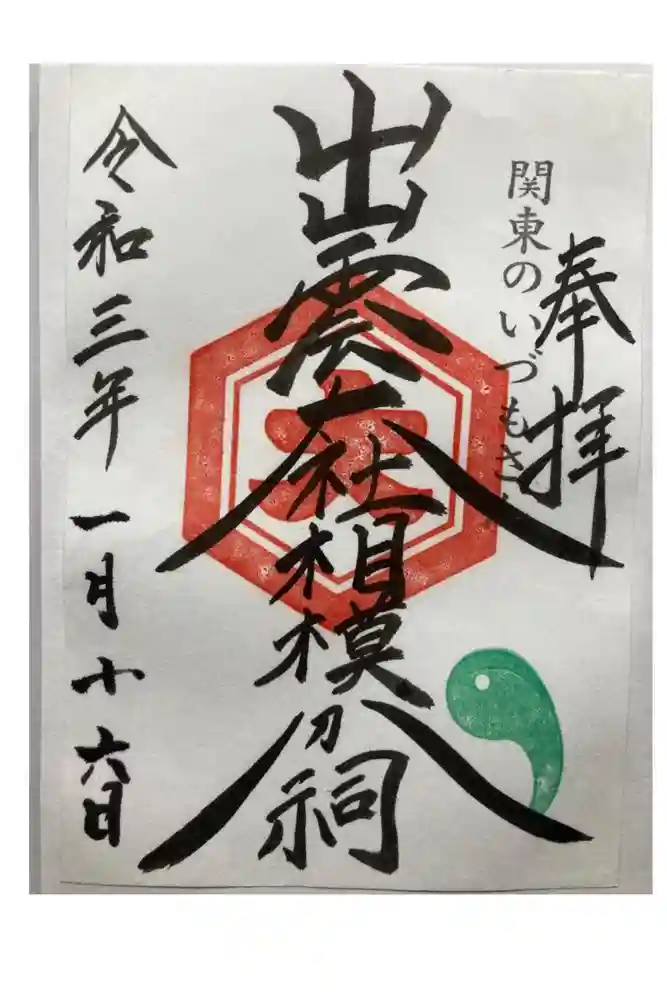 奉拝
関東のいづもさん
出雲大社相模分祠
令和三年一月十六日